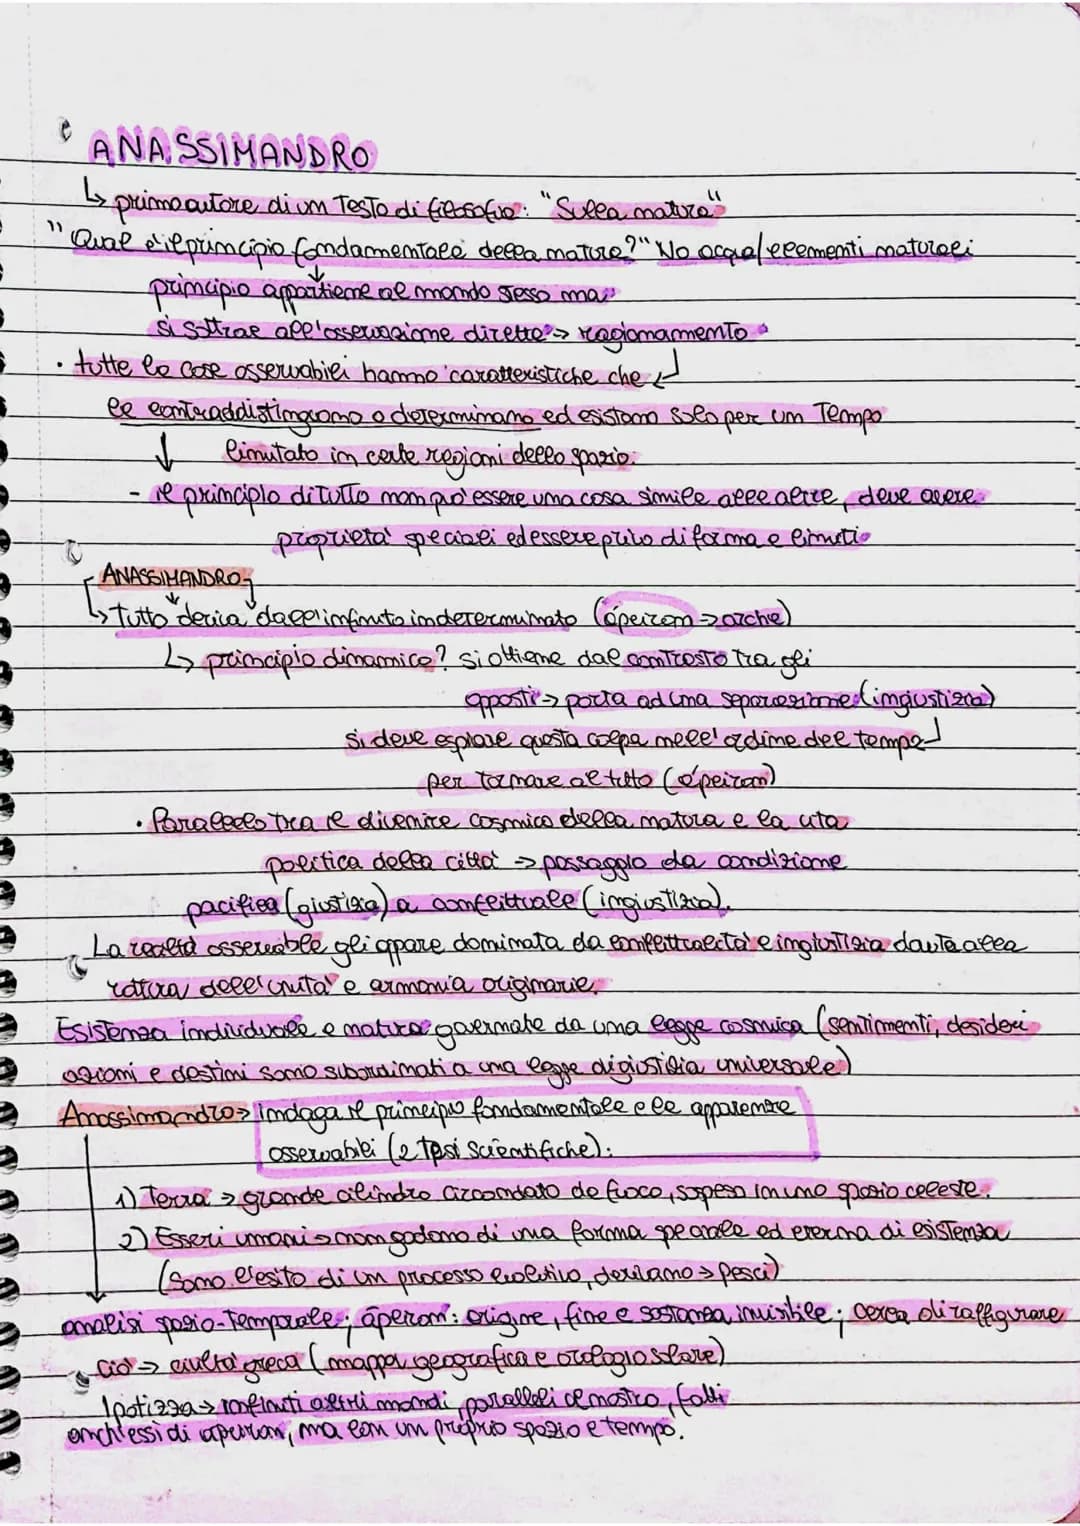 ANASSIMANDRO
↳ primo autore di un testo di filosofia: "Sulla natura"
"Qual è il principio fondamentale della natura?" No acqua/elementi naturali
principio appartiene al mondo stesso ma
si sottrae all'osservazione diretta → ragionamento
• tutte le cose osservabili hanno caratteristiche che
le contraddistinguono o determinano ed esistono solo per un tempo
↓ limitato in certe regioni dello spazio.
- il principio di tutto non può essere una cosa simile alle altre, deve avere
proprietà speciali ed essere privo di forma e limiti
ANASSIMANDRO
↳ Tutto deriva dall'infinito indeterminato (ápeiron → archè)
↳ principio dinamico? si ottiene dal contrasto tra gli
opposti → porta ad una separazione (ingiustizia)
si deve espiare questa colpa nell'ordine del tempo
per tornare al tutto (ápeiron)
• Parallelo tra il divenire cosmico della natura e la vita
politica della città → passaggio da condizione
pacifica (giustizia) a conflittuale (ingiustizia).
La realtà osservabile gli appare dominata da conflittualità e ingiustizia dovuta alla
rottura dell'unità e armonia originarie.
Esistenza individuale e natura governate da una legge cosmica (sentimenti, desideri
azioni e destini sono subordinati a una legge di giustizia universale)
Anassimandro → indaga il principio fondamentale e le apparenze
osservabili (2 tesi scientifiche):
1) Terra → grande cilindro circondato da fuoco, sospeso in uno spazio celeste.
2) Esseri umani → non godono di una forma speciale ed eterna di esistenza
(sono l'esito di un processo evolutivo, deriviamo → pesci)
analisi spazio-temporale; āpeiron: origine, fine e sostanza invisibile; cerca di raffigurare
ciò → civiltà greca (mappa geografica e orologio solare)
Ipotizza → infiniti altri mondi, paralleli al nostro, fatti
anch'essi di apeiron, ma con un proprio spazio e tempo.